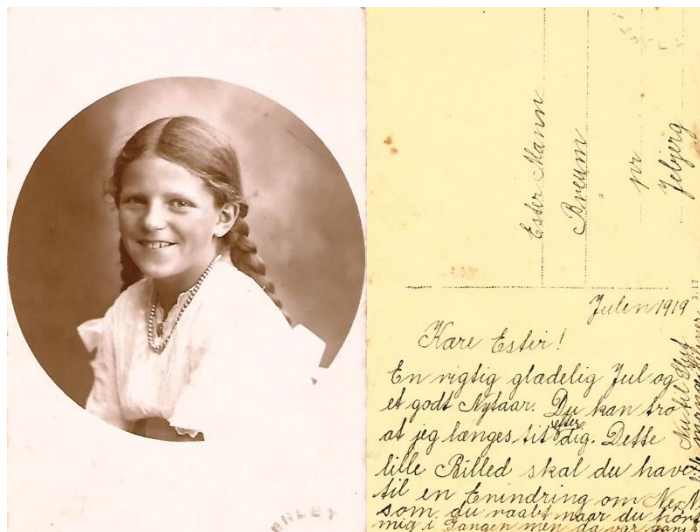 Ester Mann
Breum
pr
Jebjerg
Julen 1919
Kære Ester!
En rigtig glædelig Jul og
et godt Nytaar. Du kan tro
at jeg længes tit efter dig. Dette
lille Billed skal du have
til en Erindring om
som du raabt naar du hørt
mig i Gangen men da var
ENLEY